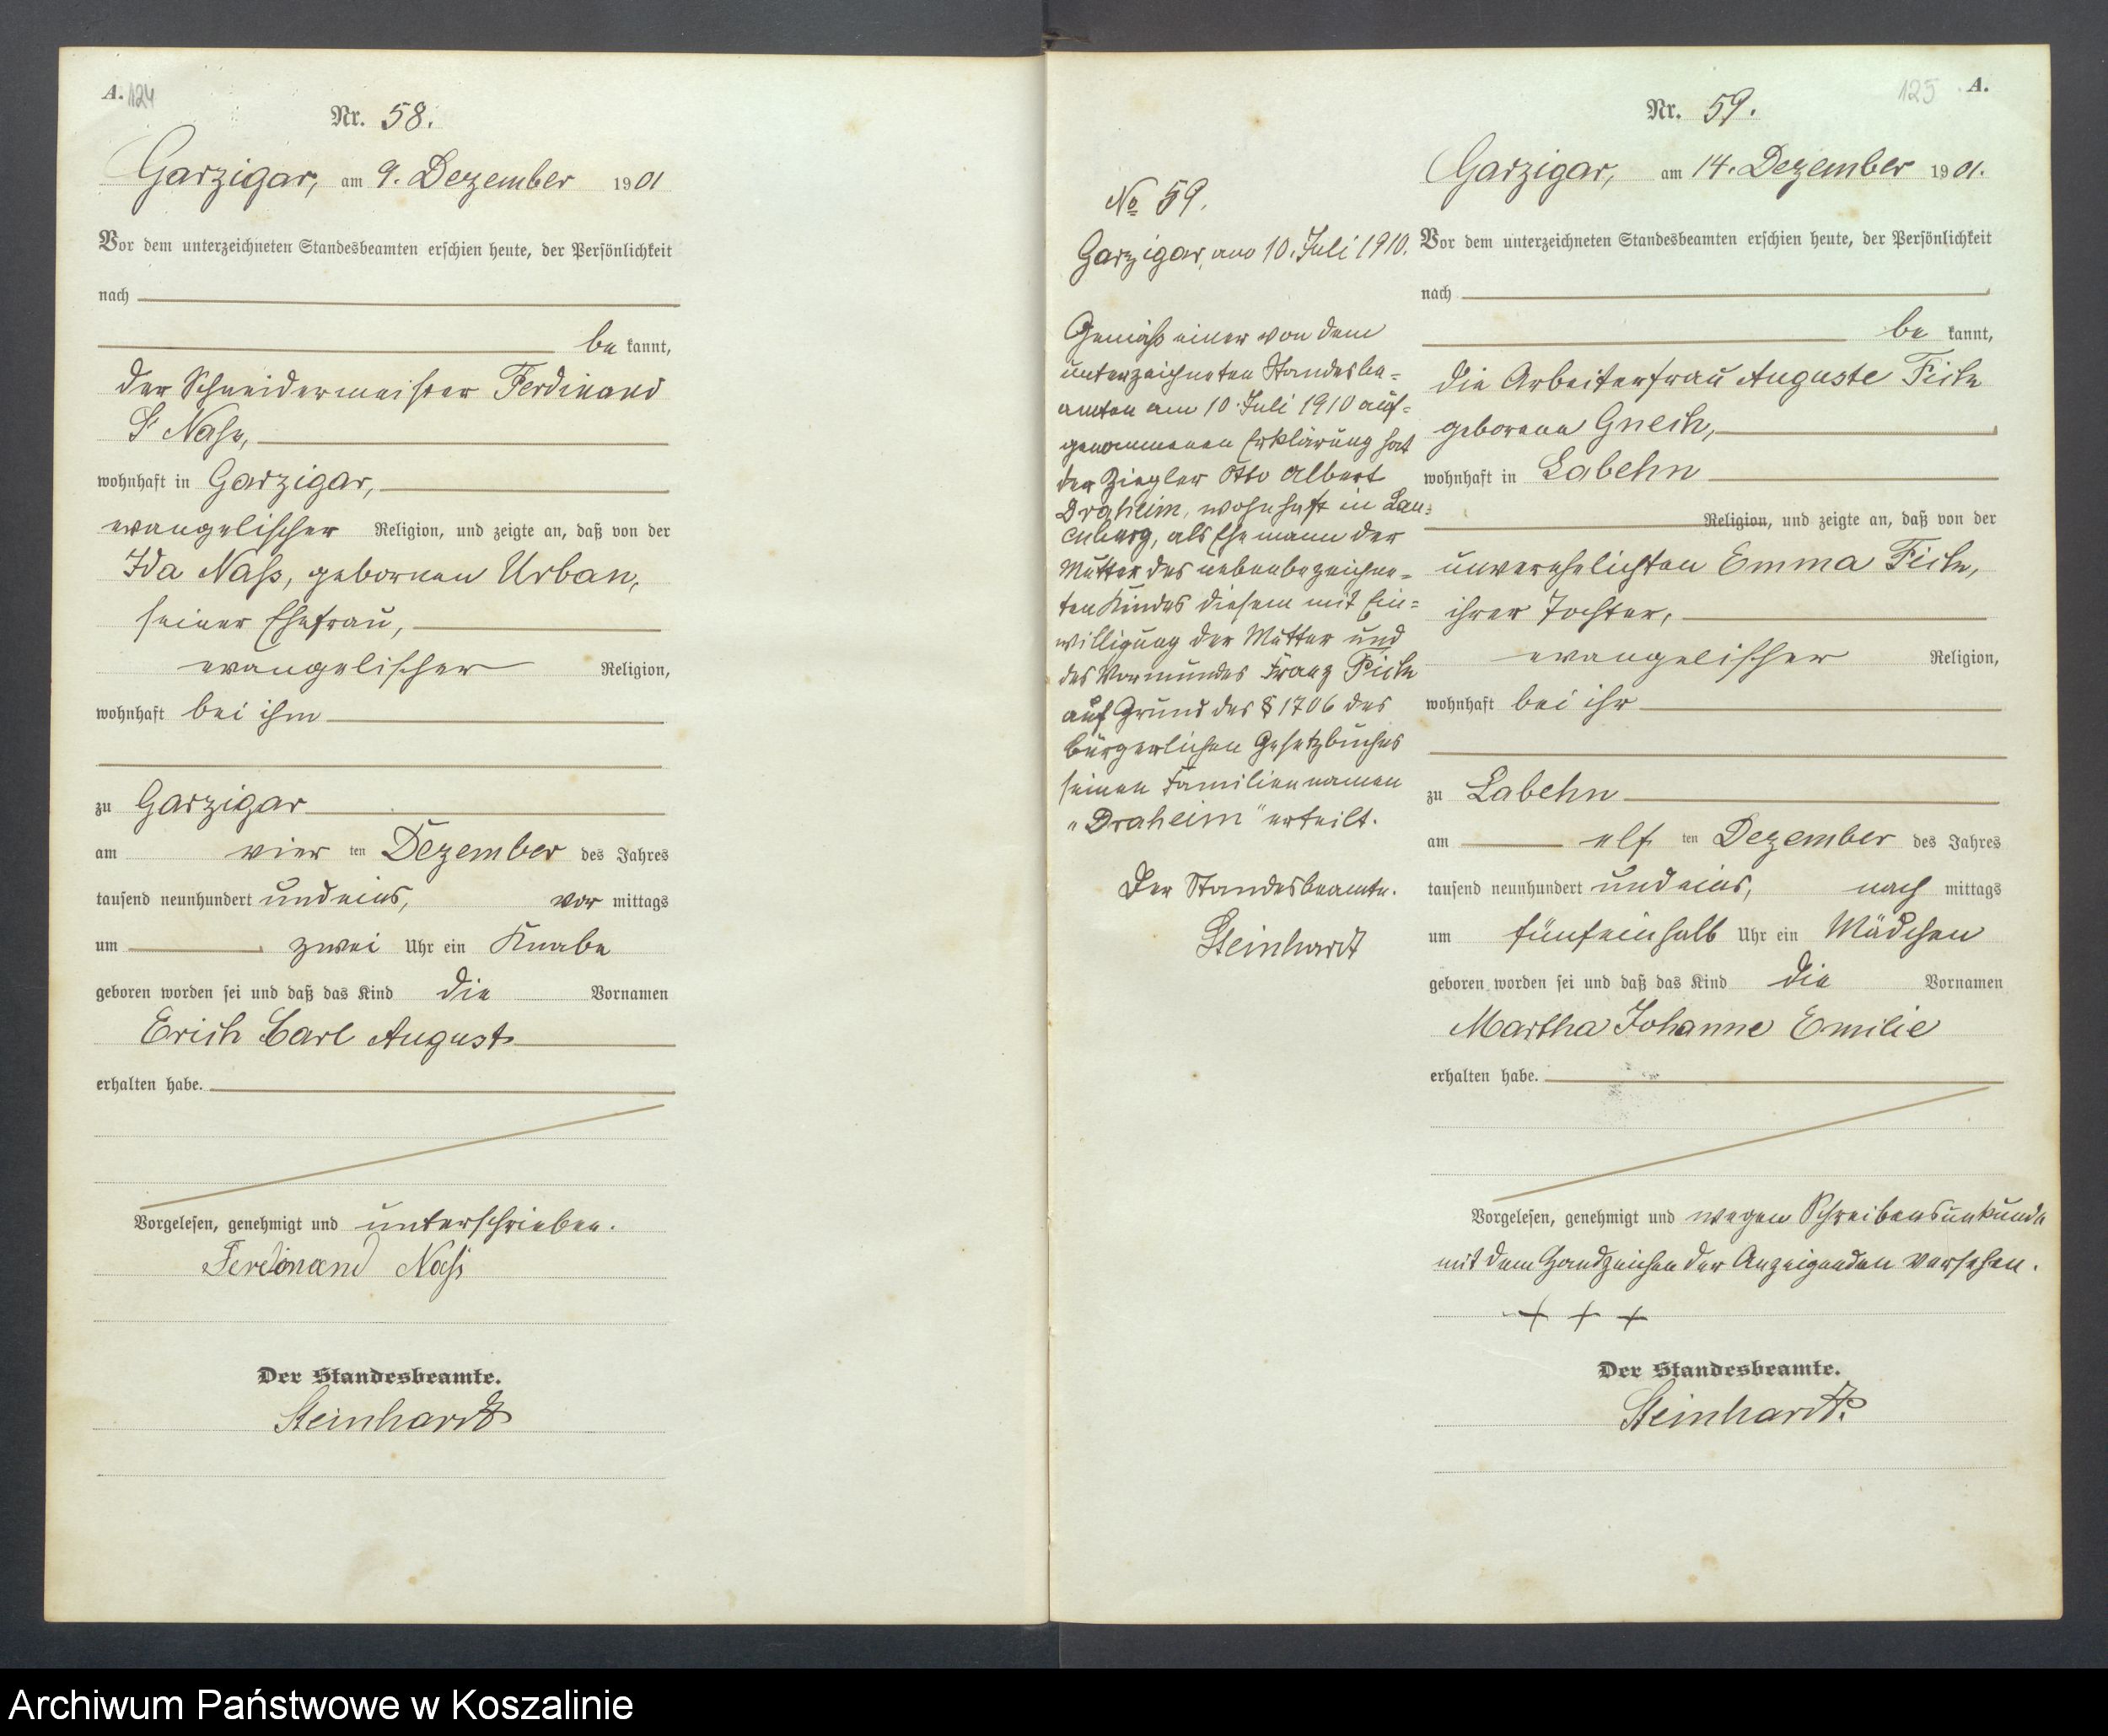 A. 124
Nr. 58.
Garzigar, am 9. Dezember 1901
Vor dem unterzeichneten Standesbeamten erschien heute, der Persönlichkeit
nach
be kannt,
der Schneidermeister Ferdinand
Nass,
wohnhaft in Garzigar,
evangelischer Religion, und zeigte an, daß von der
Ida Nass, gebornen Urban,
seiner Ehefrau,
evangelischer Religion,
wohnhaft bei ihm
zu Garzigar
am vier ten Dezember des Jahres
tausend neunhundert undeins, vor mittags
um zwei Uhr ein Knabe
geboren worden sei und daß das Kind die Vornamen
Erich Carl August
erhalten habe.
Vorgelesen, genehmigt und unterschrieben.
Ferdinand Nass
Der Standesbeamte.
Steinhardt
No 59.
Garzigar, am 10. Juli 1910.
Gemäß einer von dem
unterzeichneten Standesbe=
amten am 10. Juli 1910 auf=
genommenen Erklärung hat
der Ziegler Otto Albert
Draheim, wohnhaft in Lau=
enburg, als Ehemann der
Mutter des nebenbezeichne=
ten Kindes diesem mit Ein=
willigung der Mutter und
des Vormundes Franz
auf Grund des § 1706 des
bürgerlichen Gesetzbuches
seinen Familiennamen
„Draheim" erteilt.
Der Standesbeamte.
Steinhardt
125 A.
Nr. 59.
Garzigar, am 14. Dezember 1901.
Vor dem unterzeichneten Standesbeamten erschien heute, der Persönlichkeit
nach
be kannt,
die Arbeiterfrau Auguste
geborene Gnech,
wohnhaft in Labehn
Religion, und zeigte an, daß von der
unverehelichten Emma
ihrer Tochter,
evangelischer Religion,
wohnhaft bei ihr
zu Labehn
am elf ten Dezember des Jahres
tausend neunhundert undeins, nach mittags
um fünfeinhalb Uhr ein Mädchen
geboren worden sei und daß das Kind die Vornamen
Martha Johanne Emilie
erhalten habe.
Vorgelesen, genehmigt und wegen Schreibensunkunde
mit dem Handzeichen der Anzeigenden versehen.
+ + +
Der Standesbeamte.
Steinhardt.
Archiwum Państwowe w Koszalinie